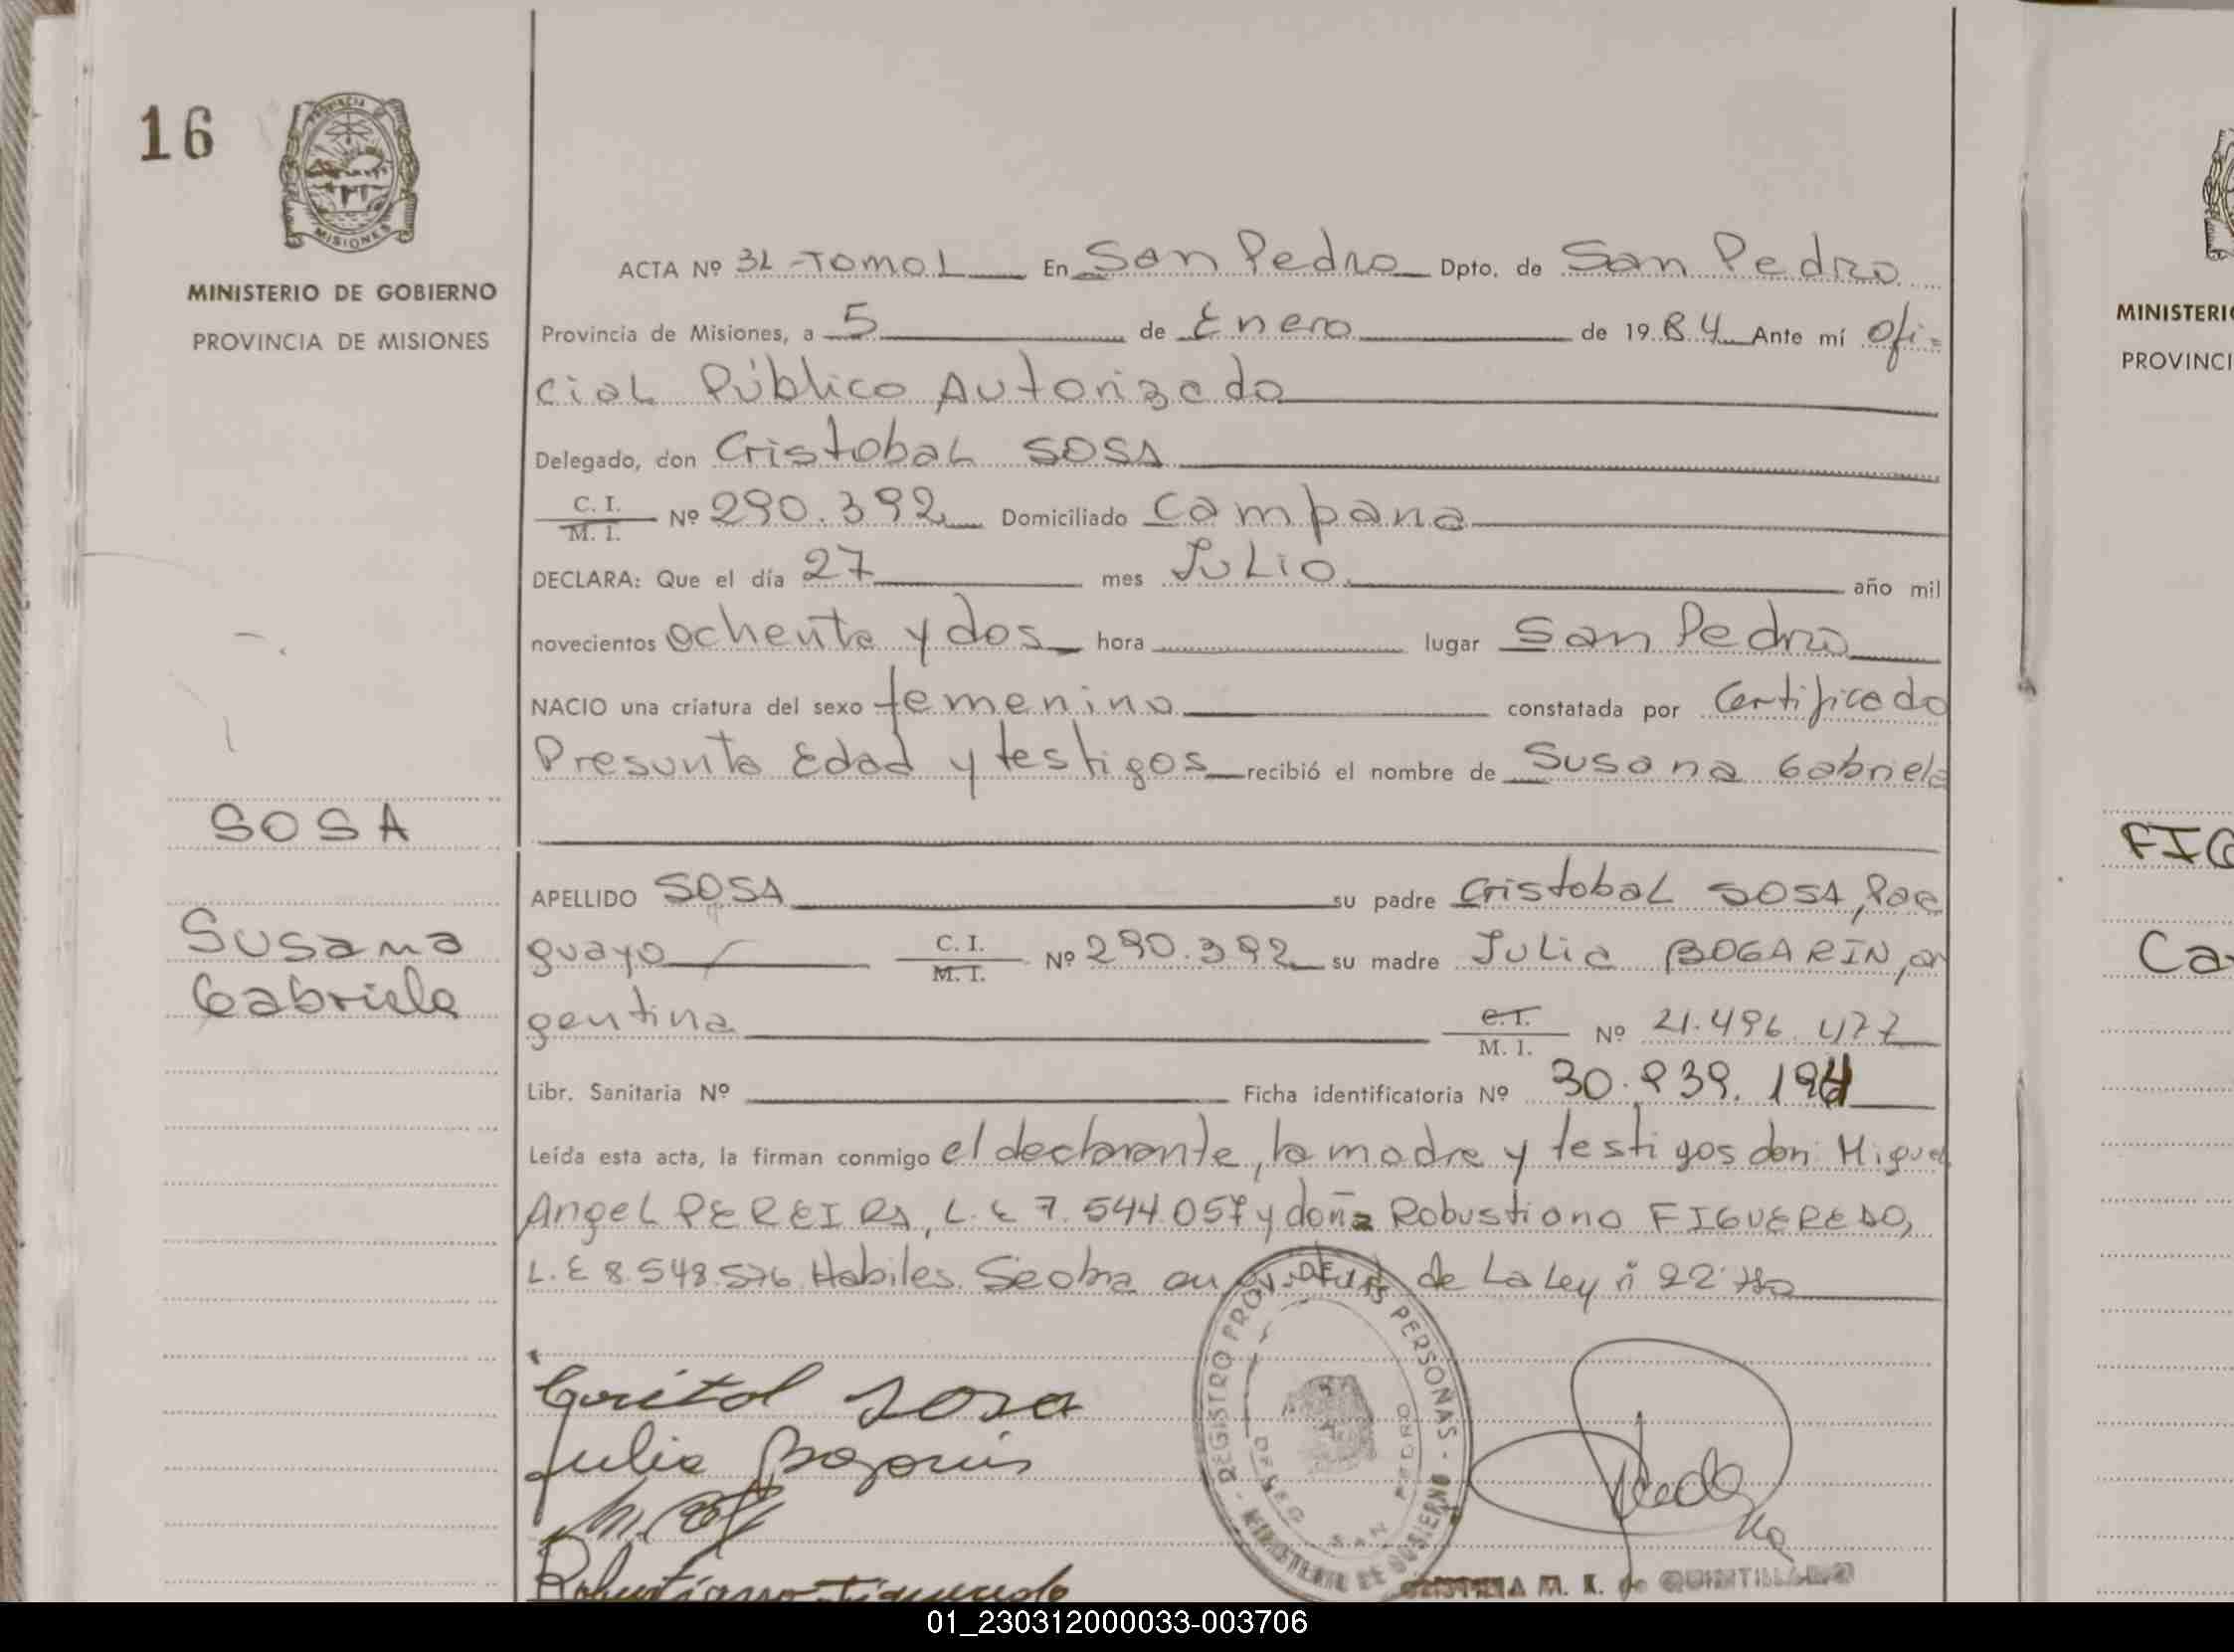 16
PROVINCIA DE
MISIONES
MINISTERIO DE GOBIERNO
PROVINCIA DE MISIONES
SOSA
Susana
Gabriela
ACTA Nº 31 - TOMO 1 En San Pedro Dpto. de San Pedro
Provincia de Misiones, a 5 de Enero de 1984 Ante mí Ofi-
cial Público Autorizado
Delegado, don Cristobal SOSA
C. I. M. I. Nº 290.392 Domiciliado Campana
DECLARA: Que el día 27 mes Julio año mil
novecientos ochenta y dos hora lugar San Pedro
NACIO una criatura del sexo femenino constatada por Certificado
Presunta Edad y testigos recibió el nombre de Susana Gabriela
APELLIDO SOSA su padre Cristobal SOSA, Para
guayo C. I. M. I. Nº 290.392 su madre Julia BOGARIN, ar
gentina C. I. M. I. Nº 21.496.477
Libr. Sanitaria Nº Ficha identificatoria Nº 30.939.194
Leída esta acta, la firman conmigo el declarante, la madre y testigos don Miguel
Angel PEREIRA, L.E 7.544.057 y doña Robustiano FIGUEREDO,
L.E 8.548.576 Habiles. Se obra en de La Ley n 22
Cristobal Sosa
Julia Bogarin
Robustiano Figueredo
REGISTRO PROV. DE LAS PERSONAS - MINISTERIO DE GOBIERNO -
SAN PEDRO
M. K. de QUINTILLANO
MINISTERIO
PROVINCI
FIG
Ca
01_230312000033-003706